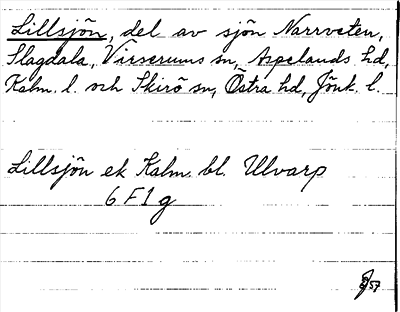 Lillsjön, del av sjön Narrveten,
Slagdala, Virserums sn, Aspelands hd,
Kalm. l. och Skirö sn, Östra hd, Jönk. l.
Lillsjön ek Kalm. bl. Ulvarp
6 F 1 g
57